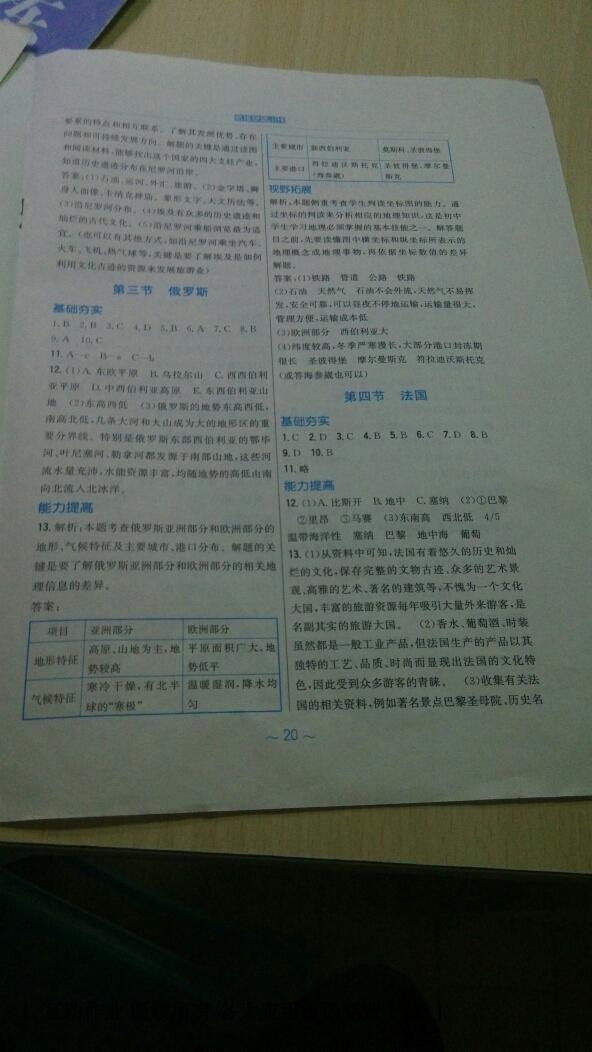 要素的特点和相互联系。了解其发展优势、存在
问题和可持续发展方向。解题的关键是通过读图
和阅读材料,能够找出这个国家的四大支柱产业,
知道历史遗迹分布在尼罗河沿岸。
答案:(1)石油、运河、外汇、旅游。(2)金字塔、狮
身人面像、卡纳克神庙、象形文字、太阳历法等。
(3)沿尼罗河分布。(4)埃及有众多的历史遗迹和
灿烂的古代文化。(5)沿尼罗河乘船浏览最为适
宜。(也可以有其他方式,如沿尼罗河乘坐汽车、
火车、飞机、热气球等,关键是要了解埃及是如何
利用文化古迹的资源来发展旅游业)
第三节 俄罗斯
基础夯实
1. B 2. B 3. C 4. D 5. B 6. A 7. C 8. B
9. A 10. C
11. A—c B—a C—b
12. (1)A. 东欧平原 B. 乌拉尔山 C. 西西伯利
亚平原 D. 中西伯利亚高原 E. 东西伯利亚山
地 (2)东高西低 (3)俄罗斯的地势东高西低,
南高北低,几条大河和大山成为大的地形区的重
要分界线。特别是俄罗斯东部西伯利亚的鄂毕
河、叶尼塞河、勒拿河都发源于南部山地,这些河
流水量充沛,水能资源丰富,均随地势的高低由南
向北流入北冰洋。
能力提高
13. 解析:本题考查俄罗斯亚洲部分和欧洲部分的
地形、气候特征及主要城市、港口分布。解题的关
键是要了解俄罗斯亚洲部分和欧洲部分的相关地
理信息的差异。
答案:
项目 亚洲部分 欧洲部分
地形特征 高原、山地为主,地势较高 平原面积广大,地势低平
气候特征 寒冷干燥,有北半球的“寒极” 温暖湿润,降水均匀
主要城市 新西伯利亚 莫斯科、圣彼得堡
主要港口 符拉迪沃斯托克(海参崴) 圣彼得堡、摩尔曼斯克
视野拓展
解析:本题侧重考查学生判读坐标图的能力。通
过坐标的判读来分析相应的地理知识,这是初中
学生学习地理必须掌握的基本技能之一。解答题
目之前,先要读懂图中横坐标和纵坐标所表示的
地理概念或地理事物,再依据坐标数值的差异
解题。
答案:(1)铁路 管道 公路 铁路
(2)石油 天然气 石油不会外流,天然气不易挥
发,安全可靠,可以昼夜不停地运输,运输量很大,
管理方便,运输成本低
(3)欧洲部分 西伯利亚大
(4)纬度较高,冬季严寒漫长,大部分港口封冻期
很长 圣彼得堡 摩尔曼斯克 符拉迪沃斯托克
(或答海参崴也可以)
第四节 法国
基础夯实
1. C 2. D 3. C 4. B 5. B 6. C 7. D 8. B
9. D 10. B
11. 略
能力提高
12. (1)A. 比斯开 B. 地中 C. 塞纳 (2)①巴黎
②里昂 ③马赛 (3)东南高 西北低 4/5
温带海洋性 塞纳 巴黎 地中海 葡萄
13. (1)从资料中可知,法国有着悠久的历史和灿
烂的文化,保存完整的文物古迹、众多的艺术景
观、高雅的艺术、著名的建筑等,不愧为一个文化
大国,丰富的旅游资源每年吸引大量外来游客,是
名副其实的旅游大国。 (2)香水、葡萄酒、时装
虽然都是一般工业产品,但法国生产的产品以其
独特的工艺、品质、时尚而显现出法国的文化特
色,因此受到众多游客的青睐。 (3)收集有关法
国的相关资料,例如著名景点巴黎圣母院、历史名
～ 20 ～